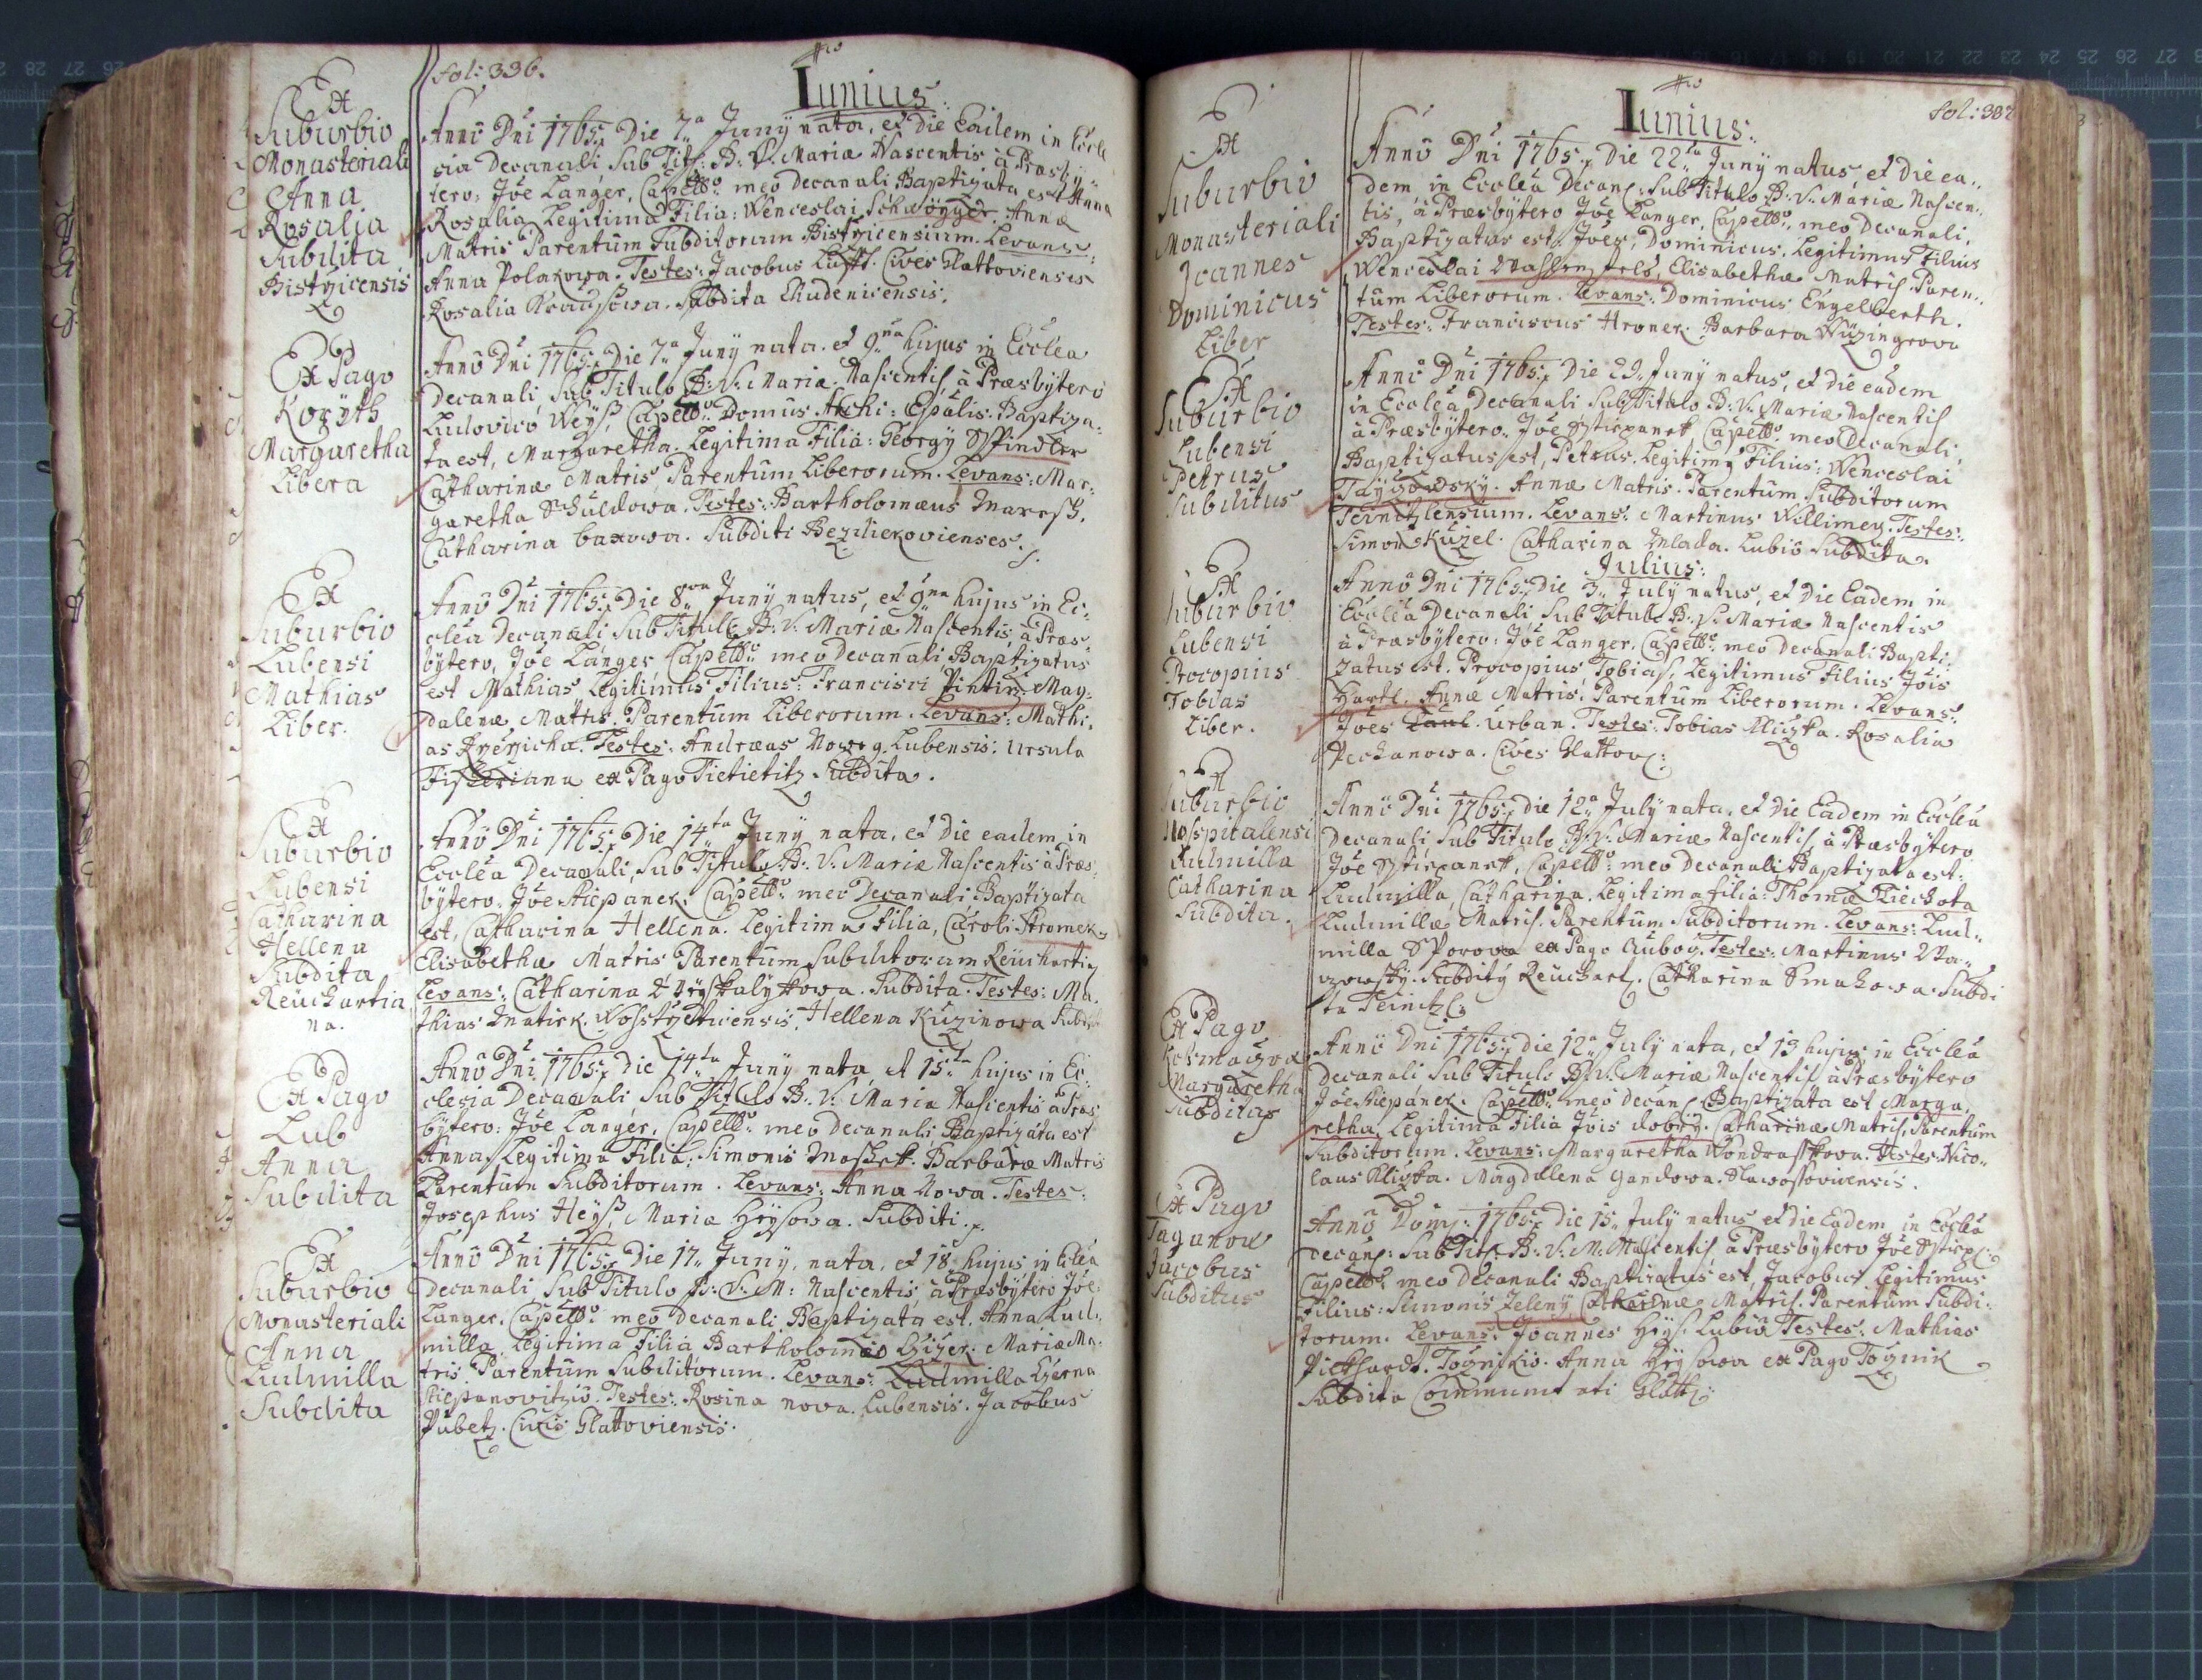 fol: 336.
Junius:
Ex
Suburbio
Monasteriali
Anna
Rosalia
Subdita
Bistricensis
Anno Dni 1765. Die 7a Juny nata, et die Eadem in Eccle
sia Decanali, Sub Tit: B: V: Mariæ Nascentis à Præsby
tero, Joe Langer, Capello meo Decanali Baptizata est Anna
Rosalia, Legitima Filia: Wenceslai Annæ
Matris Parentum Subditorum Bistricensium. Levans:
Anna Polakowa. Testes: Jacobus Lufft. Cives Glattovienses
Rosalia Kraussowa. Subdita Chudenicensis.
Ex Pago
Koryth
Margaretha
Libera
Anno Dni 1765. Die 7a Juny nata. et 9na hujus in Ecclea
Decanali Sub Titulo B: V: Mariæ Nascentis, à Præsbytero
Ludovico Weyß, Capello Domus Archi: Epālis: Baptiza-
ta est, Margaretha Legitima Filia: Georgy Spindler
Catharinæ Matris Parentum Liberorum. Levans: Mar-
garetha Schuldowa. Testes: Bartholomæus Maresh.
Catharina baxowa. Subditi Beziekovienses.
Ex
Suburbio
Lubensi
Mathias
Liber.
Anno Dni 1765. Die 8va Juny natus, et 9na hujus in Ec-
clea Decanali Sub Titulo B: V: Mariæ Nascentis à Præs-
bytero, Joe Langer Capello meo Decanali Baptizatus
est Mathias Legitimus Filius: Francisci Pintirz May-
dalenæ Matris. Parentum Liberorum. Levans: Mathi-
as Testes: Andræas Lubensis: Ursula
ex Pago Tietietitz. Subdita.
Ex
Suburbio
Lubensi
Catharina
Hellena
Subdita
Reuchartia
na.
Anno Dni 1765. Die 14ta Juny nata, et Die eadem in
Ecclea Decanali, Sub Titulo B: V: Mariæ Nascentis à Præs-
bytero: Joe Stiepanek, Capello meo Decanali Baptizata
est, Catharina Hellena. Legitima Filia, Caroli Stromek
Elisabethæ Matris Parentum Subditorum
Levans: Catharina Subdita. Testes: Ma-
thias Matiek. Hellena Kuzinowa
Ex Pago
Lub
Anna
Subdita
Anno Dni 1765. Die 14ta Juny nata et 15ta hujus in Ec-
clesia Decanali Sub Titulo B. V: Mariæ Nascentis à Præs
bytero: Joe Langer, Capello meo decanali Baptizata est
Anna Legitima Filia: Simonis Maschek. Barbaræ Matris
Parentum Subditorum. Levans: Anna Nowa. Testes:
Josephus Heyß, Maria Heysowa. Subditi.
Ex
Suburbio
Monasteriali
Anna
Ludmilla
Subdita
Anno Dni 1765. Die 17. Juny, nata, et 18 hujus in Eclea
Decanali, Sub Titulo B: V: M: Nascentis à Præsbytero Joe
Langer, Capello meo Decanali Baptizata est. Anna Lud-
milla, Legitima Filia Bartholomæi Mariæ Ma-
tris Parentum Subditorum. Levans: Ludmilla
Testes: Rosina nowa. Lubensis. Jacobus
Pubetz. Civis Glattoviensis.
Junius:
fol: 337
Ex
Suburbio
Monasteriali
Joannes
Dominicus
Liber
Anno Dni 1765. Die 22da Juny natus et Die ea-
dem, in Ecclea Decan: Sub Titulo B: V: Mariæ Nascen-
tis, à Præsbytero Joe Langer, Capello meo Decanali,
Baptizatus est, Joes, Dominicus, Legitimus Filius
Wenceslai Elisabethæ Matris. Paren-
tum Liberorum. Levans: Dominicus Engelberth.
Testes: Franciscus Hroner. Barbara Wuzingrova
Ex
Suburbio
Lubensi
Petrus
Subditus
Anno Dni 1765. Die 29. Juny natus, et Die eadem
in Ecclea Decanali Sub Titulo B: V: Mariæ Nascentis
à Præsbytero. Joe Sstiepanek Capello meo Decanali,
Baptizatus est, Petrus Legitimus Filius: Wenceslai
Annæ Matris. Parentum Subditorum
Levans: Martinus Willimey. Testes:
Simon Kuzel. Catharina Mlada. Lubio Subdita.
Julius:
Ex
Suburbio
Lubensi
Procopius
Tobias
Liber.
Anno Dni 1765. Die 3. July natus, et Die Eadem in
Ecclea Decanali Sub Titulo B: V: Mariæ Nascentis
à Præsbytero: Joe Langer. Capello meo Decanali Bapti-
zatus est. Procopius Tobias, Legitimus Filius Jois
Hartl. Annæ Matris. Parentum Liberorum. Levans:
Joes Urban. Testes: Tobias Rosalia
Cives Glattov:
Ex
Suburbio
Hospitalensi
Ludmilla
Catharina
Subdita.
Anno Dni 1765. Die 12a July nata, et Die Eadem in Ecclea
Decanali Sub Titulo B: V: Mariæ Nascentis, à Præsbytero
Joe Sstiepanek, Capello meo Decanali Baptizata est:
Ludmilla, Catharina. Legitima filia Thomæ Liechota
Ludmillæ Matris. Parentum Subditorum. Levans: Lud-
milla ex Pago Auboz. Testes: Martinus
Subditi Catharina Smahowa Subdi
ta Teinitz:
Ex Pago
Margaretha
Subdita
Anno Dni 1765. Die 12a July nata, et 13 hujus in Ecclea
Decanali Sub Titulo B: V: Mariæ Nascentis à Præsbytero
Joe Stiepanek. Capello meo Decan: Baptizata est Marga-
retha, Legitima Filia Jois dobry. Catharinæ Matris, Parentum
Subditorum. Levans: Margaretha Wondrasskowa. Testes: Nico-
laus Klizka. Magdalena Gandowa.
Ex Pago
Taganow
Jacobus
Subditus
Anno Dom: 1765. Die 15. July natus et die Eadem in Ecclea
Decan: Sub Tit: B: V: M: Nascentis à Præsbytero Joe Sstiep:
Capello meo Decanali Baptizatus est, Jacobus Legitimus
Filius: Simonis Zeleny Catharinæ Matris. Parentum Subdi-
torum. Levans: Joannes Heys. Lubio Testes: Mathias
Anna Heysowa ex Pago Tognik
Subdita Communitati Glatt: